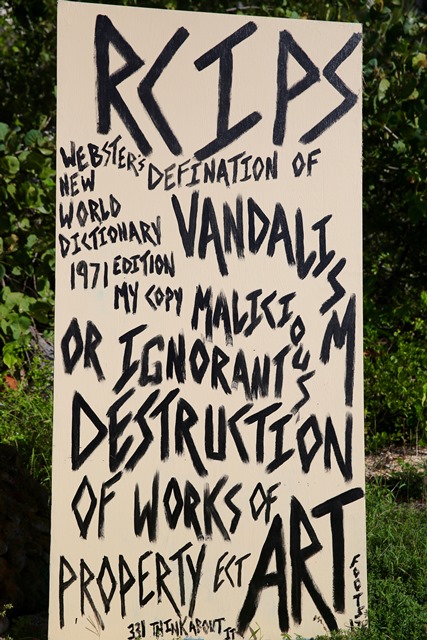 RCIPS
WEBSTER'S
NEW
WORLD
DICTIONARY
1971 EDITION
MY COPY
DEFINATION OF
VANDALISM
MALICIOUS
OR IGNORANT
DESTRUCTION
OF WORKS OF
PROPERTY ECT ART
331 THINK ABOUT IT